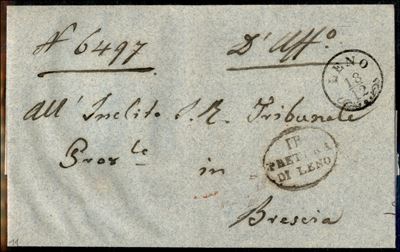 N 6497 D'Uff°
LENO
18
12
All' Inclito I. R. Tribunale
Prov.le in
I R
PRETURA
DI LENO
Brescia